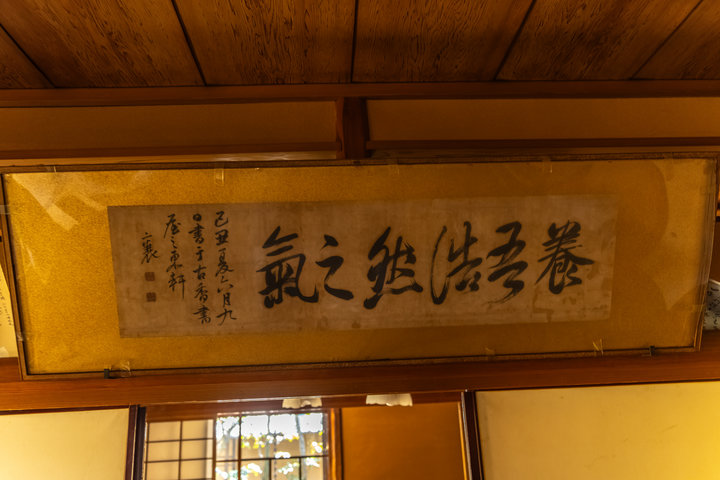 養吾浩然之氣
己丑夏六月九
日書于古香書
屋之東軒
襄